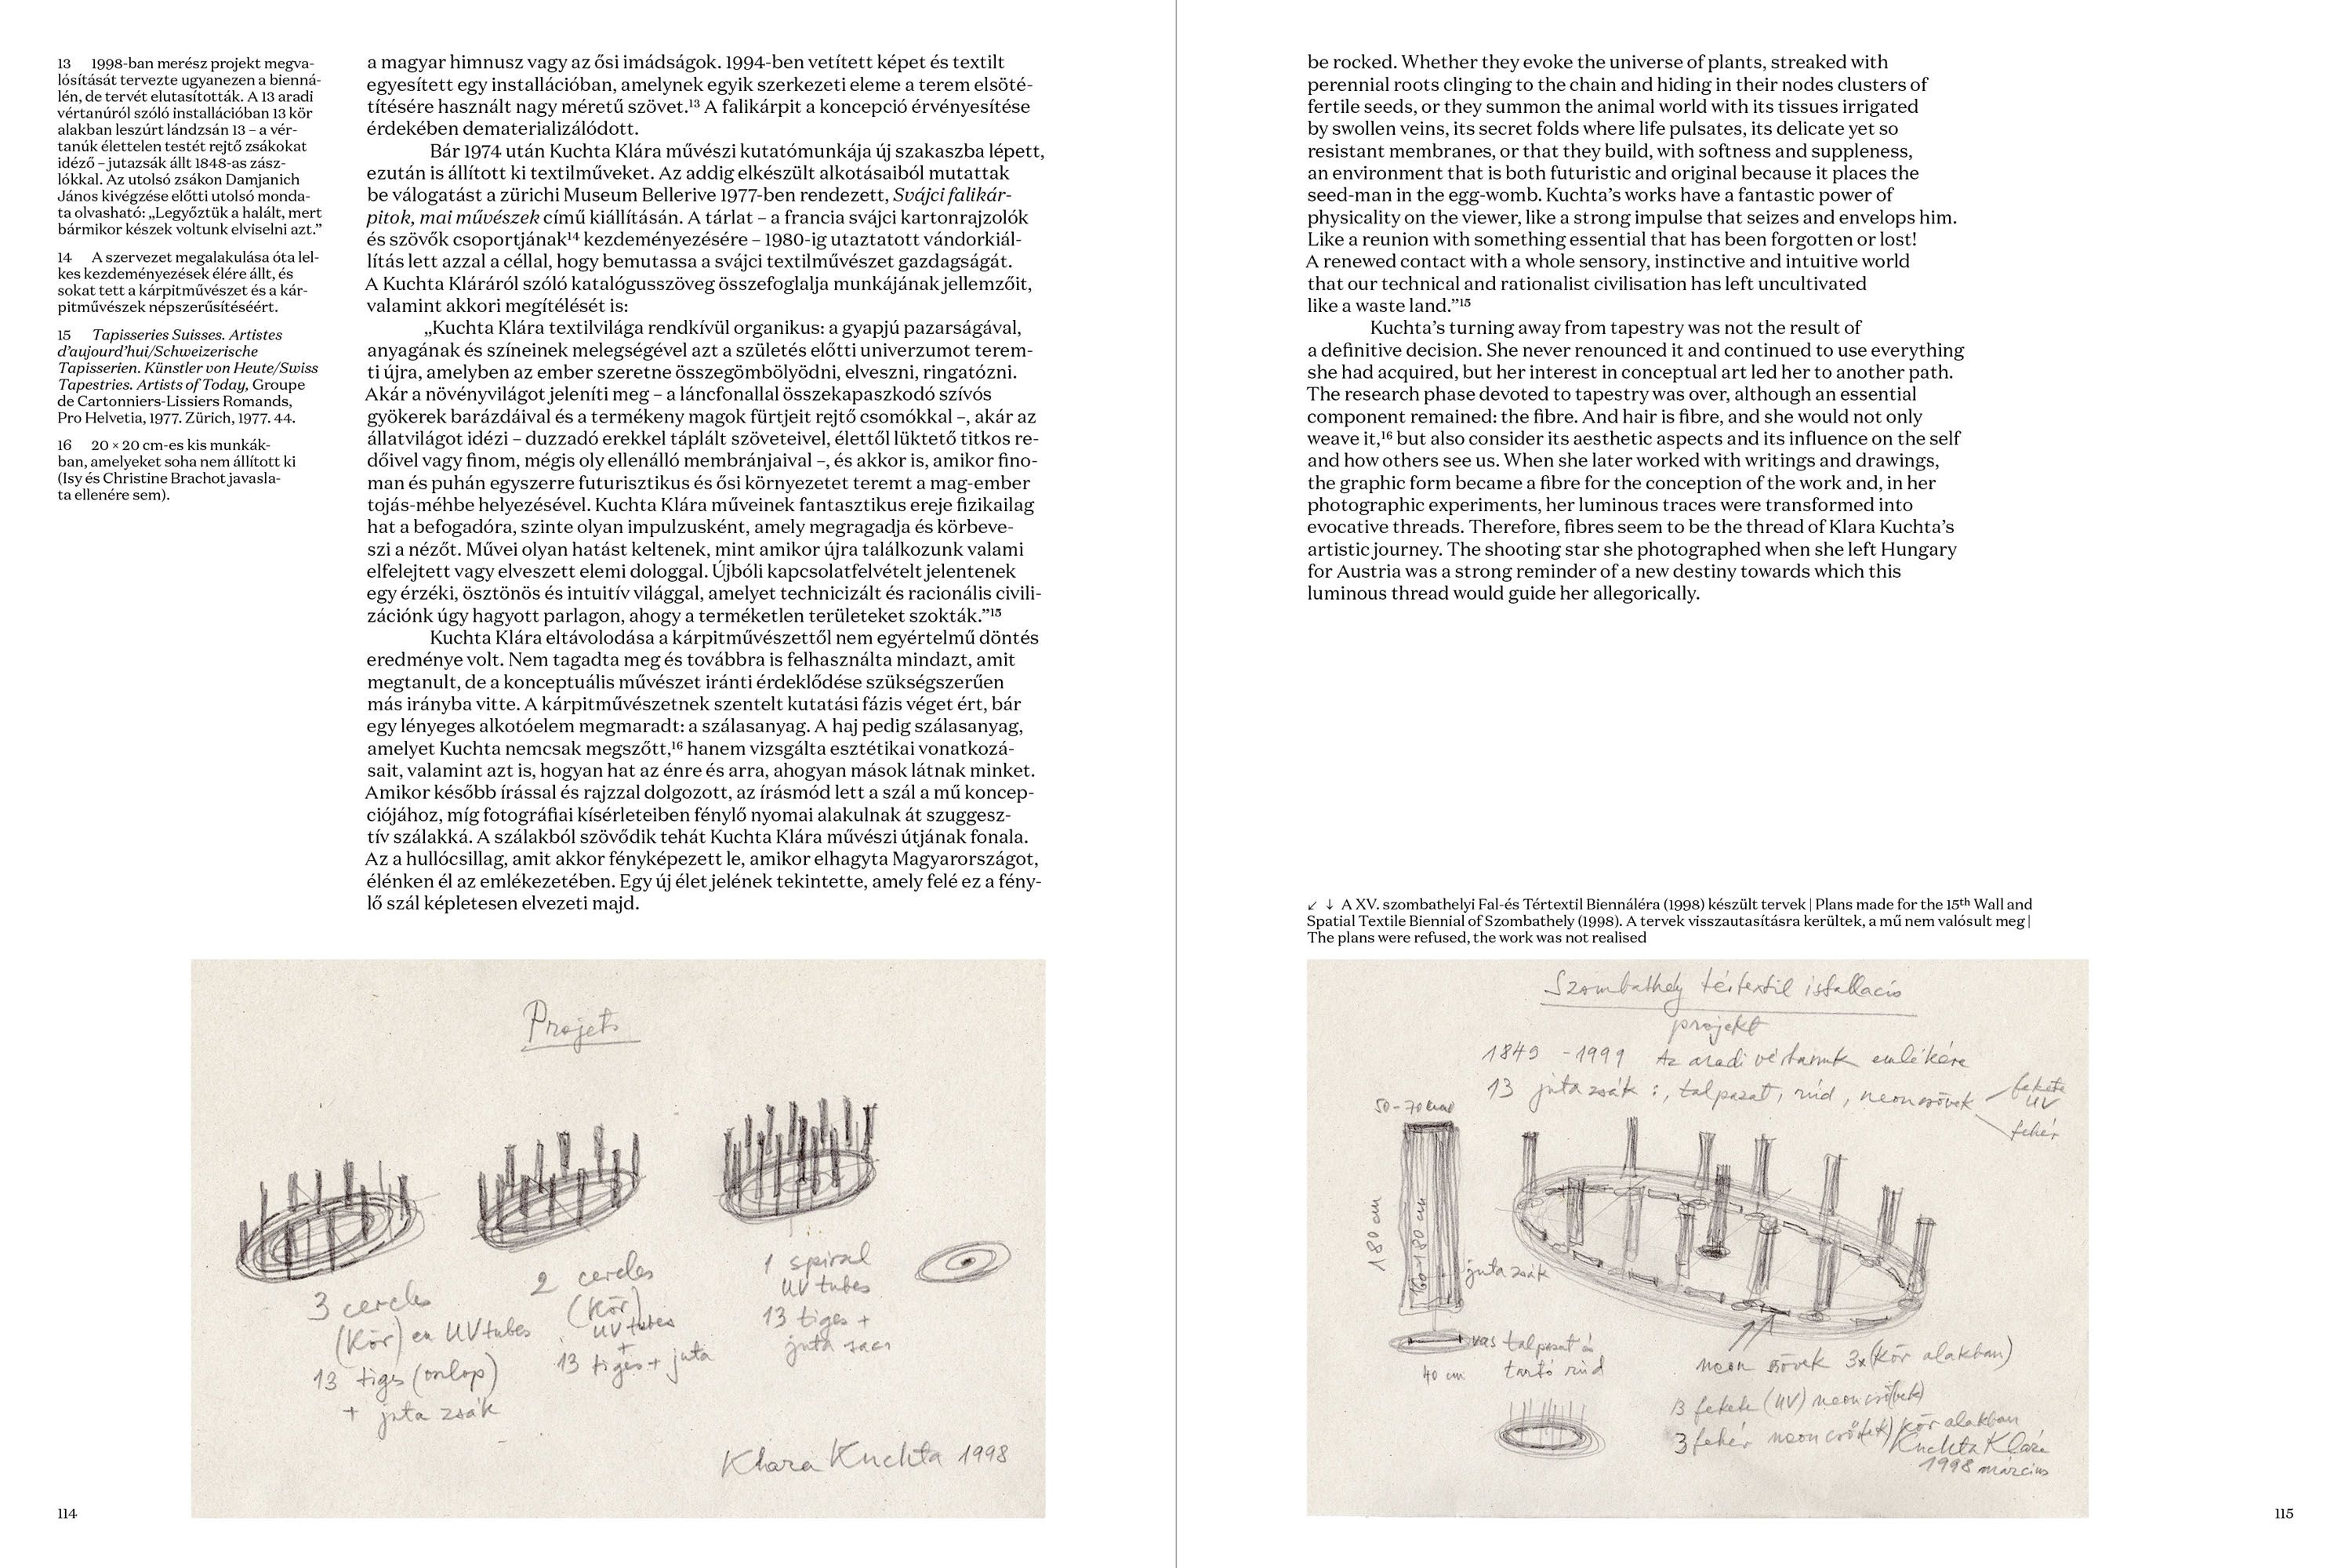 13 1998-ban merész projekt megva-
lósítását tervezte ugyanezen a bienná-
lén, de tervét elutasították. A 13 aradi
vértanúról szóló installációban 13 kör
alakban leszúrt lándzsán 13 – a vér-
tanúk élettelen testét rejtő zsákokat
idéző – jutazsák állt 1848-as zász-
lókkal. Az utolsó zsákon Damjanich
János kivégzése előtti utolsó monda-
ta olvasható: „Legyőztük a halált, mert
bármikor készek voltunk elviselni azt.”
14 A szervezet megalakulása óta lel-
kes kezdeményezések élére állt, és
sokat tett a kárpitművészet és a kár-
pitművészek népszerűsítéséért.
15 Tapisseries Suisses. Artistes
d’aujourd’hui/Schweizerische
Tapisserien. Künstler von Heute/Swiss
Tapestries. Artists of Today, Groupe
de Cartonniers-Lissiers Romands,
Pro Helvetia, 1977. Zürich, 1977. 44.
16 20 × 20 cm-es kis munkák-
ban, amelyeket soha nem állított ki
(Isy és Christine Brachot javasla-
ta ellenére sem).
a magyar himnusz vagy az ősi imádságok. 1994-ben vetített képet és textilt
egyesített egy installációban, amelynek egyik szerkezeti eleme a terem elsöté-
títésére használt nagy méretű szövet.¹³ A falikárpit a koncepció érvényesítése
érdekében dematerializálódott.
Bár 1974 után Kuchta Klára művészi kutatómunkája új szakaszba lépett,
ezután is állított ki textilműveket. Az addig elkészült alkotásaiból mutattak
be válogatást a zürichi Museum Bellerive 1977-ben rendezett, Svájci falikár-
pitok, mai művészek című kiállításán. A tárlat – a francia svájci kartonrajzolók
és szövők csoportjának¹⁴ kezdeményezésére – 1980-ig utaztatott vándorkiál-
lítás lett azzal a céllal, hogy bemutassa a svájci textilművészet gazdagságát.
A Kuchta Kláráról szóló katalógusszöveg összefoglalja munkájának jellemzőit,
valamint akkori megítélését is:
„Kuchta Klára textilvilága rendkívül organikus: a gyapjú pazarságával,
anyagának és színeinek melegségével azt a születés előtti univerzumot terem-
ti újra, amelyben az ember szeretne összegömbölyödni, elveszni, ringatózni.
Akár a növényvilágot jeleníti meg – a láncfonallal összekapaszkodó szívós
gyökerek barázdáival és a termékeny magok fürtjeit rejtő csomókkal –, akár az
állatvilágot idézi – duzzadó erekkel táplált szöveteivel, élettől lüktető titkos re-
dőivel vagy finom, mégis oly ellenálló membránjaival –, és akkor is, amikor fino-
man és puhán egyszerre futurisztikus és ősi környezetet teremt a mag-ember
tojás-méhbe helyezésével. Kuchta Klára műveinek fantasztikus ereje fizikailag
hat a befogadóra, szinte olyan impulzusként, amely megragadja és körbeve-
szi a nézőt. Művei olyan hatást keltenek, mint amikor újra találkozunk valami
elfelejtett vagy elveszett elemi dologgal. Újbóli kapcsolatfelvételt jelentenek
egy érzéki, ösztönös és intuitív világgal, amelyet technicizált és racionális civili-
zációnk úgy hagyott parlagon, ahogy a terméketlen területeket szokták.”¹⁵
Kuchta Klára eltávolodása a kárpitművészettől nem egyértelmű döntés
eredménye volt. Nem tagadta meg és továbbra is felhasználta mindazt, amit
megtanult, de a konceptuális művészet iránti érdeklődése szükségszerűen
más irányba vitte. A kárpitművészetnek szentelt kutatási fázis véget ért, bár
egy lényeges alkotóelem megmaradt: a szálasanyag. A haj pedig szálasanyag,
amelyet Kuchta nemcsak megszőtt,¹⁶ hanem vizsgálta esztétikai vonatkozá-
sait, valamint azt is, hogyan hat az énre és arra, ahogyan mások látnak minket.
Amikor később írással és rajzzal dolgozott, az írásmód lett a szál a mű koncep-
ciójához, míg fotográfiai kísérleteiben fénylő nyomai alakulnak át szuggesz-
tív szálakká. A szálakból szövődik tehát Kuchta Klára művészi útjának fonala.
Az a hullócsillag, amit akkor fényképezett le, amikor elhagyta Magyarországot,
élénken él az emlékezetében. Egy új élet jelének tekintette, amely felé ez a fény-
lő szál képletesen elvezeti majd.
Projets
3 cercles
(Kör) en UV tubes
13 tiges (onlop)
+ juta zsák
2 cercles
(Kör)
UV tubes
+
13 tiges + juta
1 spiral
UV tubes
13 tiges +
juta sacs
Klara Kuchta 1998
114
be rocked. Whether they evoke the universe of plants, streaked with
perennial roots clinging to the chain and hiding in their nodes clusters of
fertile seeds, or they summon the animal world with its tissues irrigated
by swollen veins, its secret folds where life pulsates, its delicate yet so
resistant membranes, or that they build, with softness and suppleness,
an environment that is both futuristic and original because it places the
seed-man in the egg-womb. Kuchta’s works have a fantastic power of
physicality on the viewer, like a strong impulse that seizes and envelops him.
Like a reunion with something essential that has been forgotten or lost!
A renewed contact with a whole sensory, instinctive and intuitive world
that our technical and rationalist civilisation has left uncultivated
like a waste land.”¹⁵
Kuchta’s turning away from tapestry was not the result of
a definitive decision. She never renounced it and continued to use everything
she had acquired, but her interest in conceptual art led her to another path.
The research phase devoted to tapestry was over, although an essential
component remained: the fibre. And hair is fibre, and she would not only
weave it,¹⁶ but also consider its aesthetic aspects and its influence on the self
and how others see us. When she later worked with writings and drawings,
the graphic form became a fibre for the conception of the work and, in her
photographic experiments, her luminous traces were transformed into
evocative threads. Therefore, fibres seem to be the thread of Klara Kuchta’s
artistic journey. The shooting star she photographed when she left Hungary
for Austria was a strong reminder of a new destiny towards which this
luminous thread would guide her allegorically.
↙ ↓ A XV. szombathelyi Fal-és Tértextil Biennáléra (1998) készült tervek | Plans made for the 15th Wall and
Spatial Textile Biennial of Szombathely (1998). A tervek visszautasításra kerültek, a mű nem valósult meg |
The plans were refused, the work was not realised
Szombathely tértextil istallació
projekt
1849 - 1999 Az aradi vértanuk emlékére
13 juta zsák :, talpazat, rúd, neoncsövek
fekete
UV
fehér
50-70 cm
180 cm
160-180 cm
juta zsák
vas talpazat és
tartó rúd
40 cm
neon csövek 3x (Kör alakban)
3 fekete (UV) neoncső(vek)
3 fehér neoncső(vek) kör alakban
Kuchta Klára
1998 március
115